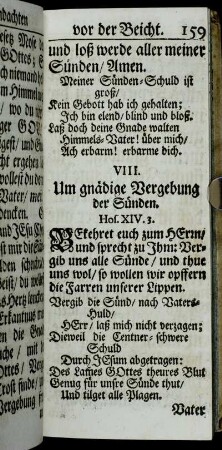 vor der Beicht. 159
und loß werde aller meiner
Sünden/ Amen.
Meiner Sünden-Schuld ist
groß/
Kein Gebott hab ich gehalten;
Ich bin elend/ blind und bloß.
Laß doch deine Gnade walten
Himmels-Vater! über mich/
Ach erbarm! erbarme dich.
VIII.
Um gnädige Vergebung
der Sünden.
Hos. XIV. 3.
BEkehret euch zum HErrn/
und sprecht zu Jhm: Ver-
gib uns alle Sünde/ und thue
uns wol/ so wollen wir opffern
die Farren unserer Lippen.
Vergib die Sünd/ nach Vaters-
Huld/
HErr/ laß mich nicht verzagen;
Dieweil die Centner-schwere
Schuld
Durch JEsum abgetragen:
Des Lam̃es GOttes theures Blut
Genug für unsre Sünde thut/
Und tilget alle Plagen.
Vater